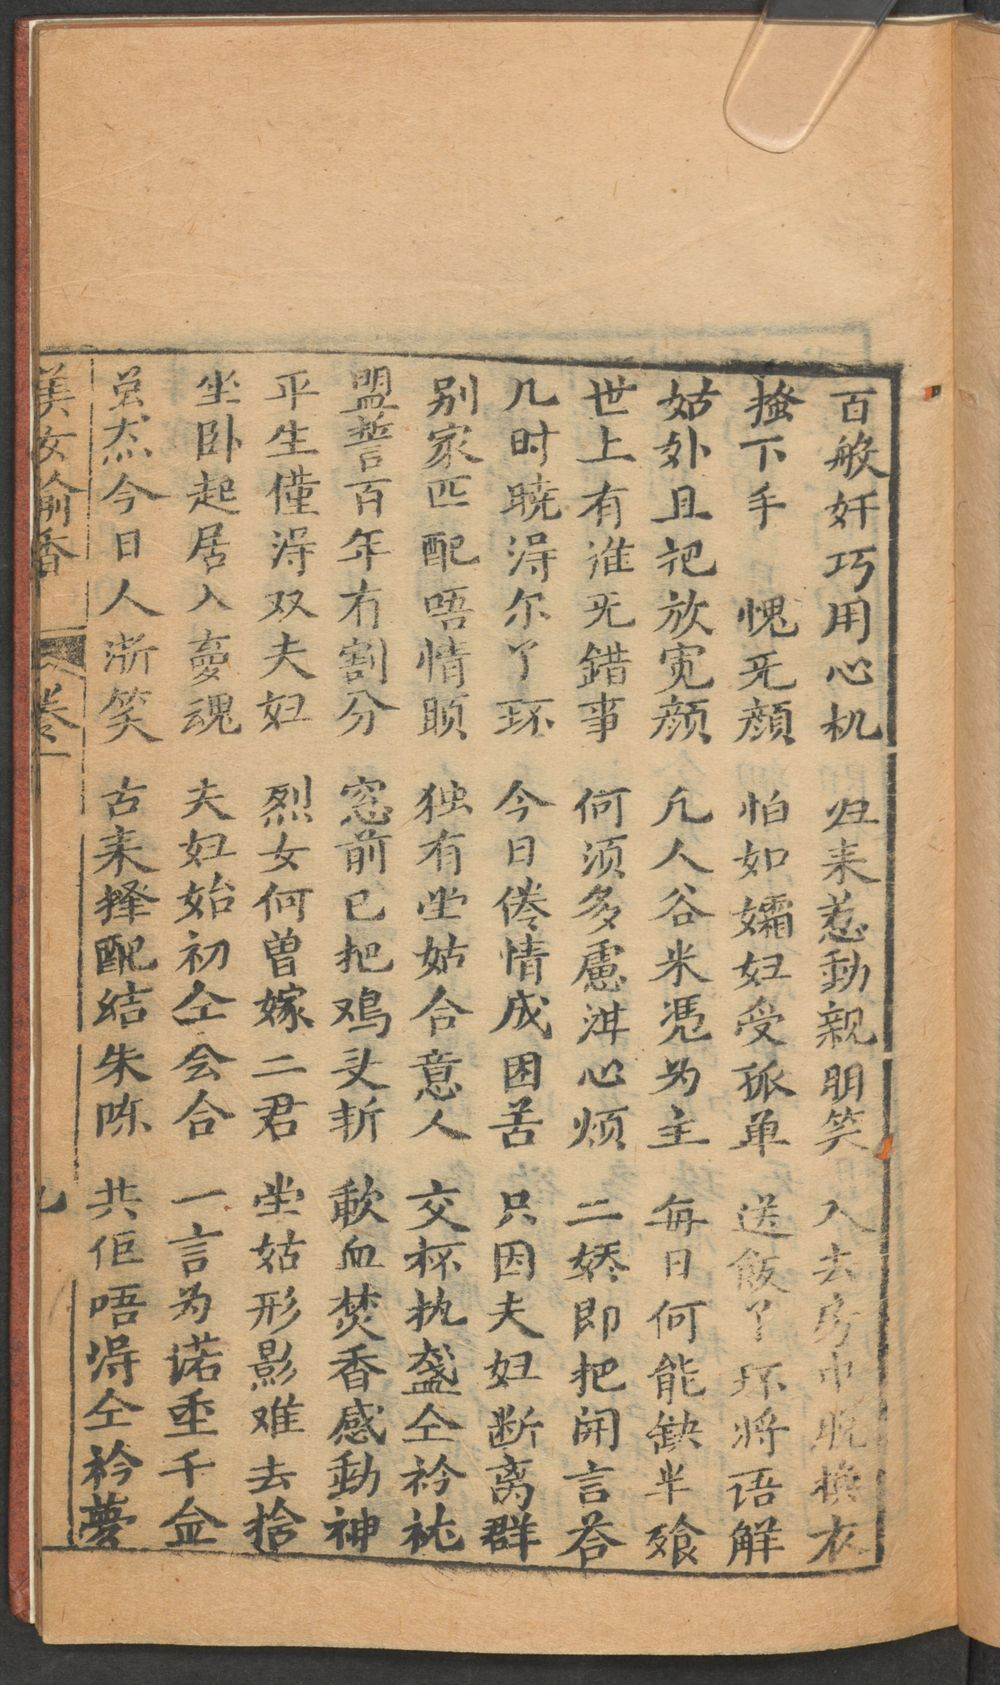 百般奸巧用心机 归来惹動親朋笑 入去房中脱换衣
搔下手 愧旡顔 怕如孀妇受孤单 送飯丫环将语解
姑外且祀放宽颜 凢人谷米凴为主 每日何能缺半飱
世上有谁旡錯事 何须多慮泄心烦 二娇即把開言荅
几时晓淂尔丫环 今日倦情成困苦 只因夫妇断离群
别家匹配唔情願 独有坐姑合意人 交杯执盏仝衿祍
盟誓百年冇割分 窓前已把鸡头斩 歃血焚香感動神
平生僅淂双夫妇 烈女何曽嫁二君 坐姑形影难去捨
坐卧起居入夣魂 夫妇始初仝会合 一言为诺重千金
虽然今日人渐笑 古来择配结朱陈 共佢唔得仝衿夢
美女偷香 卷一 九